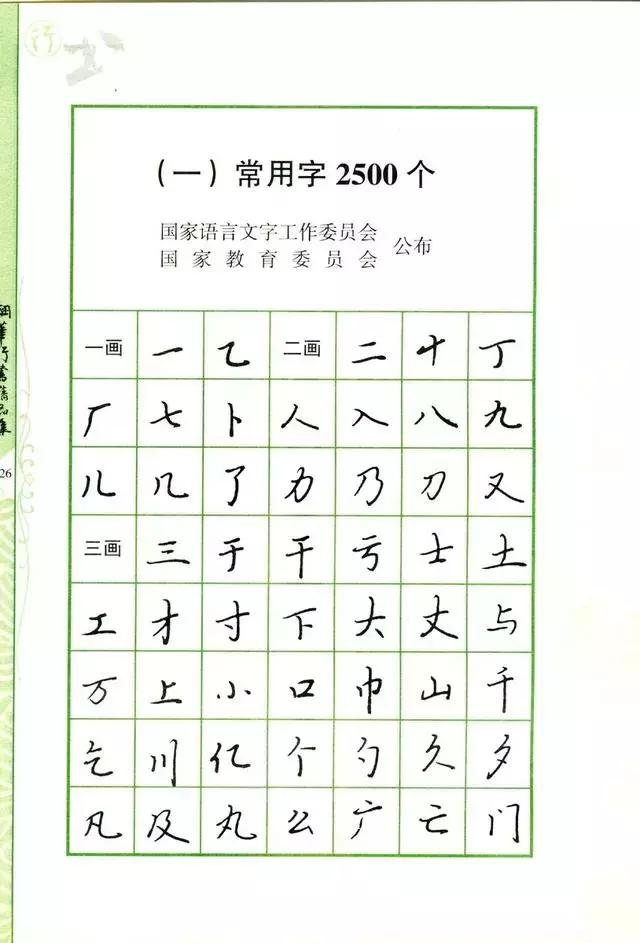 行
（一）常用字 2500 个
国家语言文字工作委员会
国家教育委员会
公布
一画 一 乙 二画 二 十 丁
厂 七 卜 人 入 八 九
儿 几 了 力 乃 刀 又
三画 三 于 干 亏 士 土
工 才 寸 下 大 丈 与
万 上 小 口 巾 山 千
乞 川 亿 个 勺 久 夕
凡 及 丸 么 广 亡 门
26